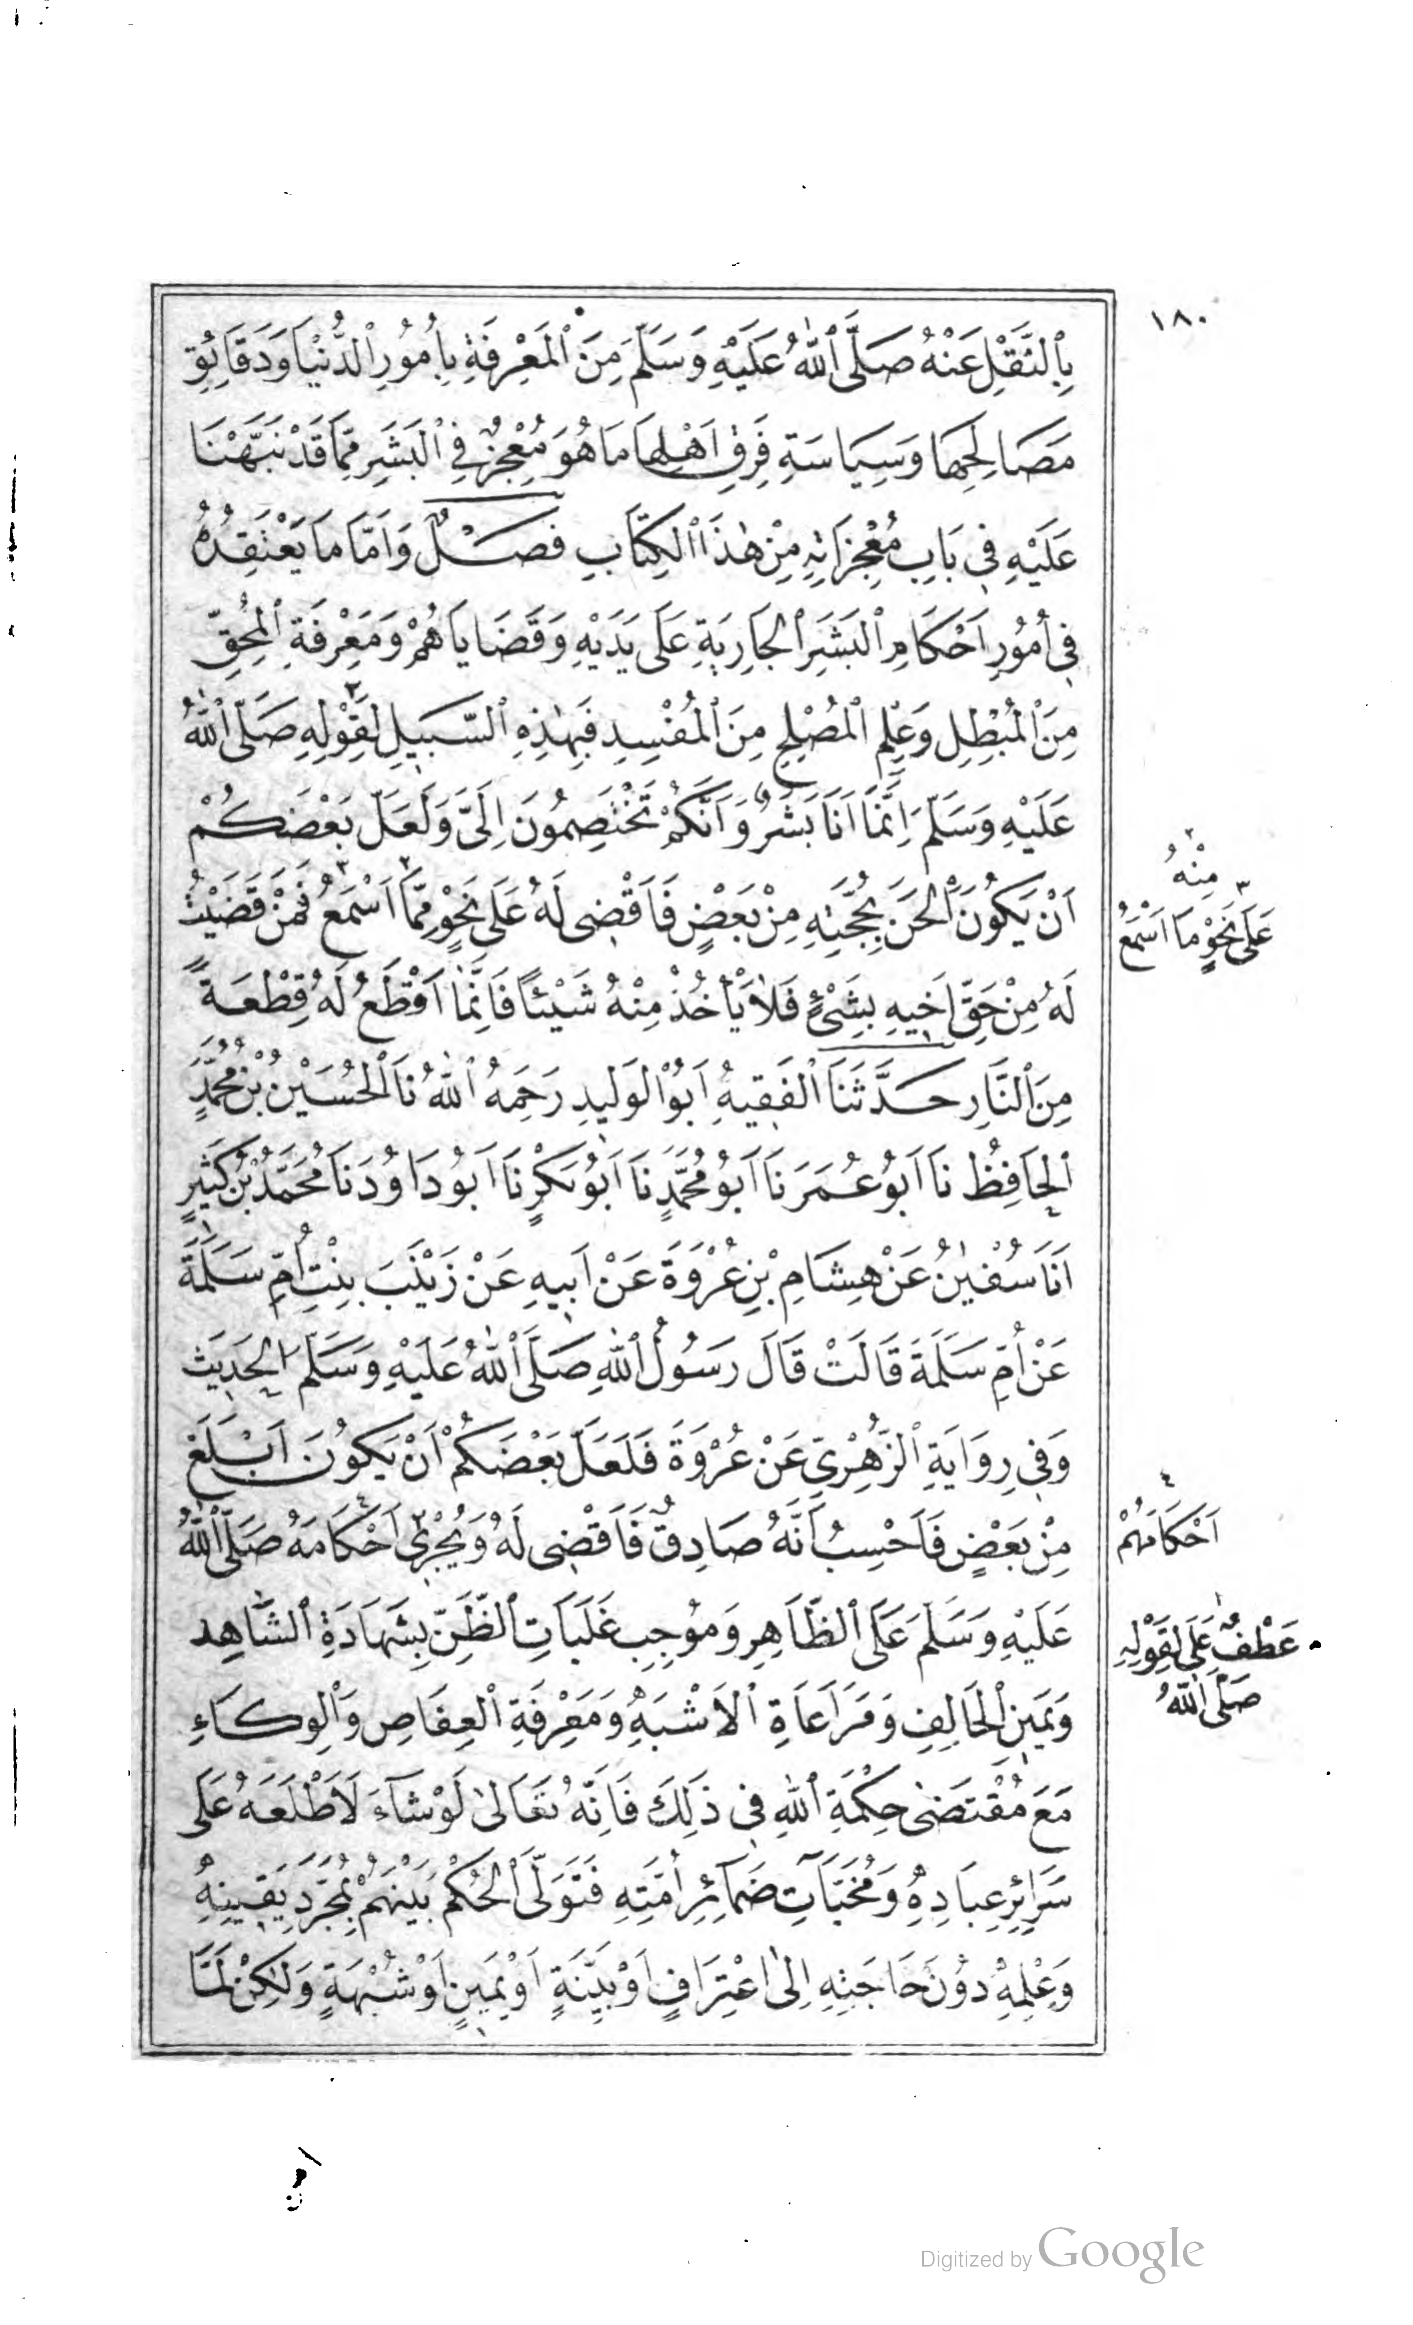 ١٨٠
بِالنَّقْلِ عَنْهُ صَلَّى اللهُ عَلَيْهِ وَسَلَّمَ مِنَ الْمَعْرِفَةِ بِأُمُورِ الدُّنْيَا وَدَقَائِقِ
مَصَالِحِهَا وَسِيَاسَةِ فِرَقِ اَهْلِهَا مَا هُوَ مُعْجِزٌ فِي الْبَشَرِ مِمَّا قَدْ نَبَّهْنَا
عَلَيْهِ فِي بَابِ مُعْجِزَاتِهِ مِنْ هٰذَا الْكِتَابِ فَصْلٌ وَاَمَّا مَا يَعْتَقِدُهُ
فِي أُمُورِ اَحْكَامِ الْبَشَرِ الْجَارِيَةِ عَلَى يَدَيْهِ وَقَضَايَاهُمْ وَمَعْرِفَةِ الْمُحِقِّ
مِنَ الْمُبْطِلِ وَعِلْمِ الْمُصْلِحِ مِنَ الْمُفْسِدِ فَبِهٰذِهِ السَّبِيلِ لِقَوْلِهِ صَلَّى اللهُ
عَلَيْهِ وَسَلَّمَ اِنَّمَا اَنَا بَشَرٌ وَاَنَّكُمْ تَخْتَصِمُونَ اِلَيَّ وَلَعَلَّ بَعْضَكُمْ
اَنْ يَكُونَ اَلْحَنَ بِحُجَّتِهِ مِنْ بَعْضٍ فَاَقْضِى لَهُ عَلَى نَحْوٍ مِمَّا اَسْمَعُ فَمَنْ قَضَيْتُ
مِنْهُ
عَلَى نَحْوِ مَا اَسْمَعُ
لَهُ مِنْ حَقِّ اَخِيهِ بِشَىْءٍ فَلَا يَأْخُذْ مِنْهُ شَيْئًا فَاِنَّمَا اَقْطَعُ لَهُ قِطْعَةً
مِنَ النَّارِ حَدَّثَنَا الْفَقِيهُ اَبُو الْوَلِيدِ رَحِمَهُ اللهُ نَا الْحُسَيْنُ بْنُ مُحَمَّدٍ
الْحَافِظُ نَا اَبُو عُمَرَ نَا اَبُو مُحَمَّدٍ نَا اَبُو بَكْرٍ نَا اَبُو دَاوُدَ نَا مُحَمَّدُ بْنُ كَثِيرٍ
اَنَا سُفْيٰنُ عَنْ هِشَامِ بْنِ عُرْوَةَ عَنْ اَبِيهِ عَنْ زَيْنَبَ بِنْتِ اُمِّ سَلَمَةَ
عَنْ اُمِّ سَلَمَةَ قَالَتْ قَالَ رَسُولُ اللهِ صَلَّى اللهُ عَلَيْهِ وَسَلَّمَ الْحَدِيثَ
وَفِي رِوَايَةِ الزُّهْرِيِّ عَنْ عُرْوَةَ فَلَعَلَّ بَعْضَكُمْ اَنْ يَكُونَ اَبْلَغَ
مِنْ بَعْضٍ فَاَحْسِبُ اَنَّهُ صَادِقٌ فَاَقْضِى لَهُ وَيُجْرِى اَحْكَامَهُ صَلَّى اللهُ
اَحْكَامَهُمْ
عَلَيْهِ وَسَلَّمَ عَلَى الظَّاهِرِ وَمُوجِبِ غَلَبَاتِ الظَّنِّ بِشَهَادَةِ الشَّاهِدِ
عَطْفٌ عَلَى لِقَوْلِهِ
صَلَّى اللهُ
وَيَمِينِ الْحَالِفِ وَمُرَاعَاةِ الْاَشْبَهِ وَمَعْرِفَةِ الْعِفَاصِ وَالْوِكَاءِ
مَعَ مُقْتَضٰى حِكْمَةِ اللهِ فِي ذٰلِكَ فَاِنَّهُ تَعَالىٰ لَوْ شَاءَ لَاَطْلَعَهُ عَلَى
سَرَائِرِ عِبَادِهِ وَمُخَبَّآتِ ضَمَائِرِ اُمَّتِهِ فَتَوَلَّى الْحُكْمَ بَيْنَهُمْ بِمُجَرَّدِ يَقِينِهِ
وَعِلْمِهِ دُونَ حَاجَتِهِ اِلَى اعْتِرَافٍ اَوْ بَيِّنَةٍ اَوْ يَمِينٍ اَوْ شُبْهَةٍ وَلٰكِنْ لَمَّا
Digitized by Google